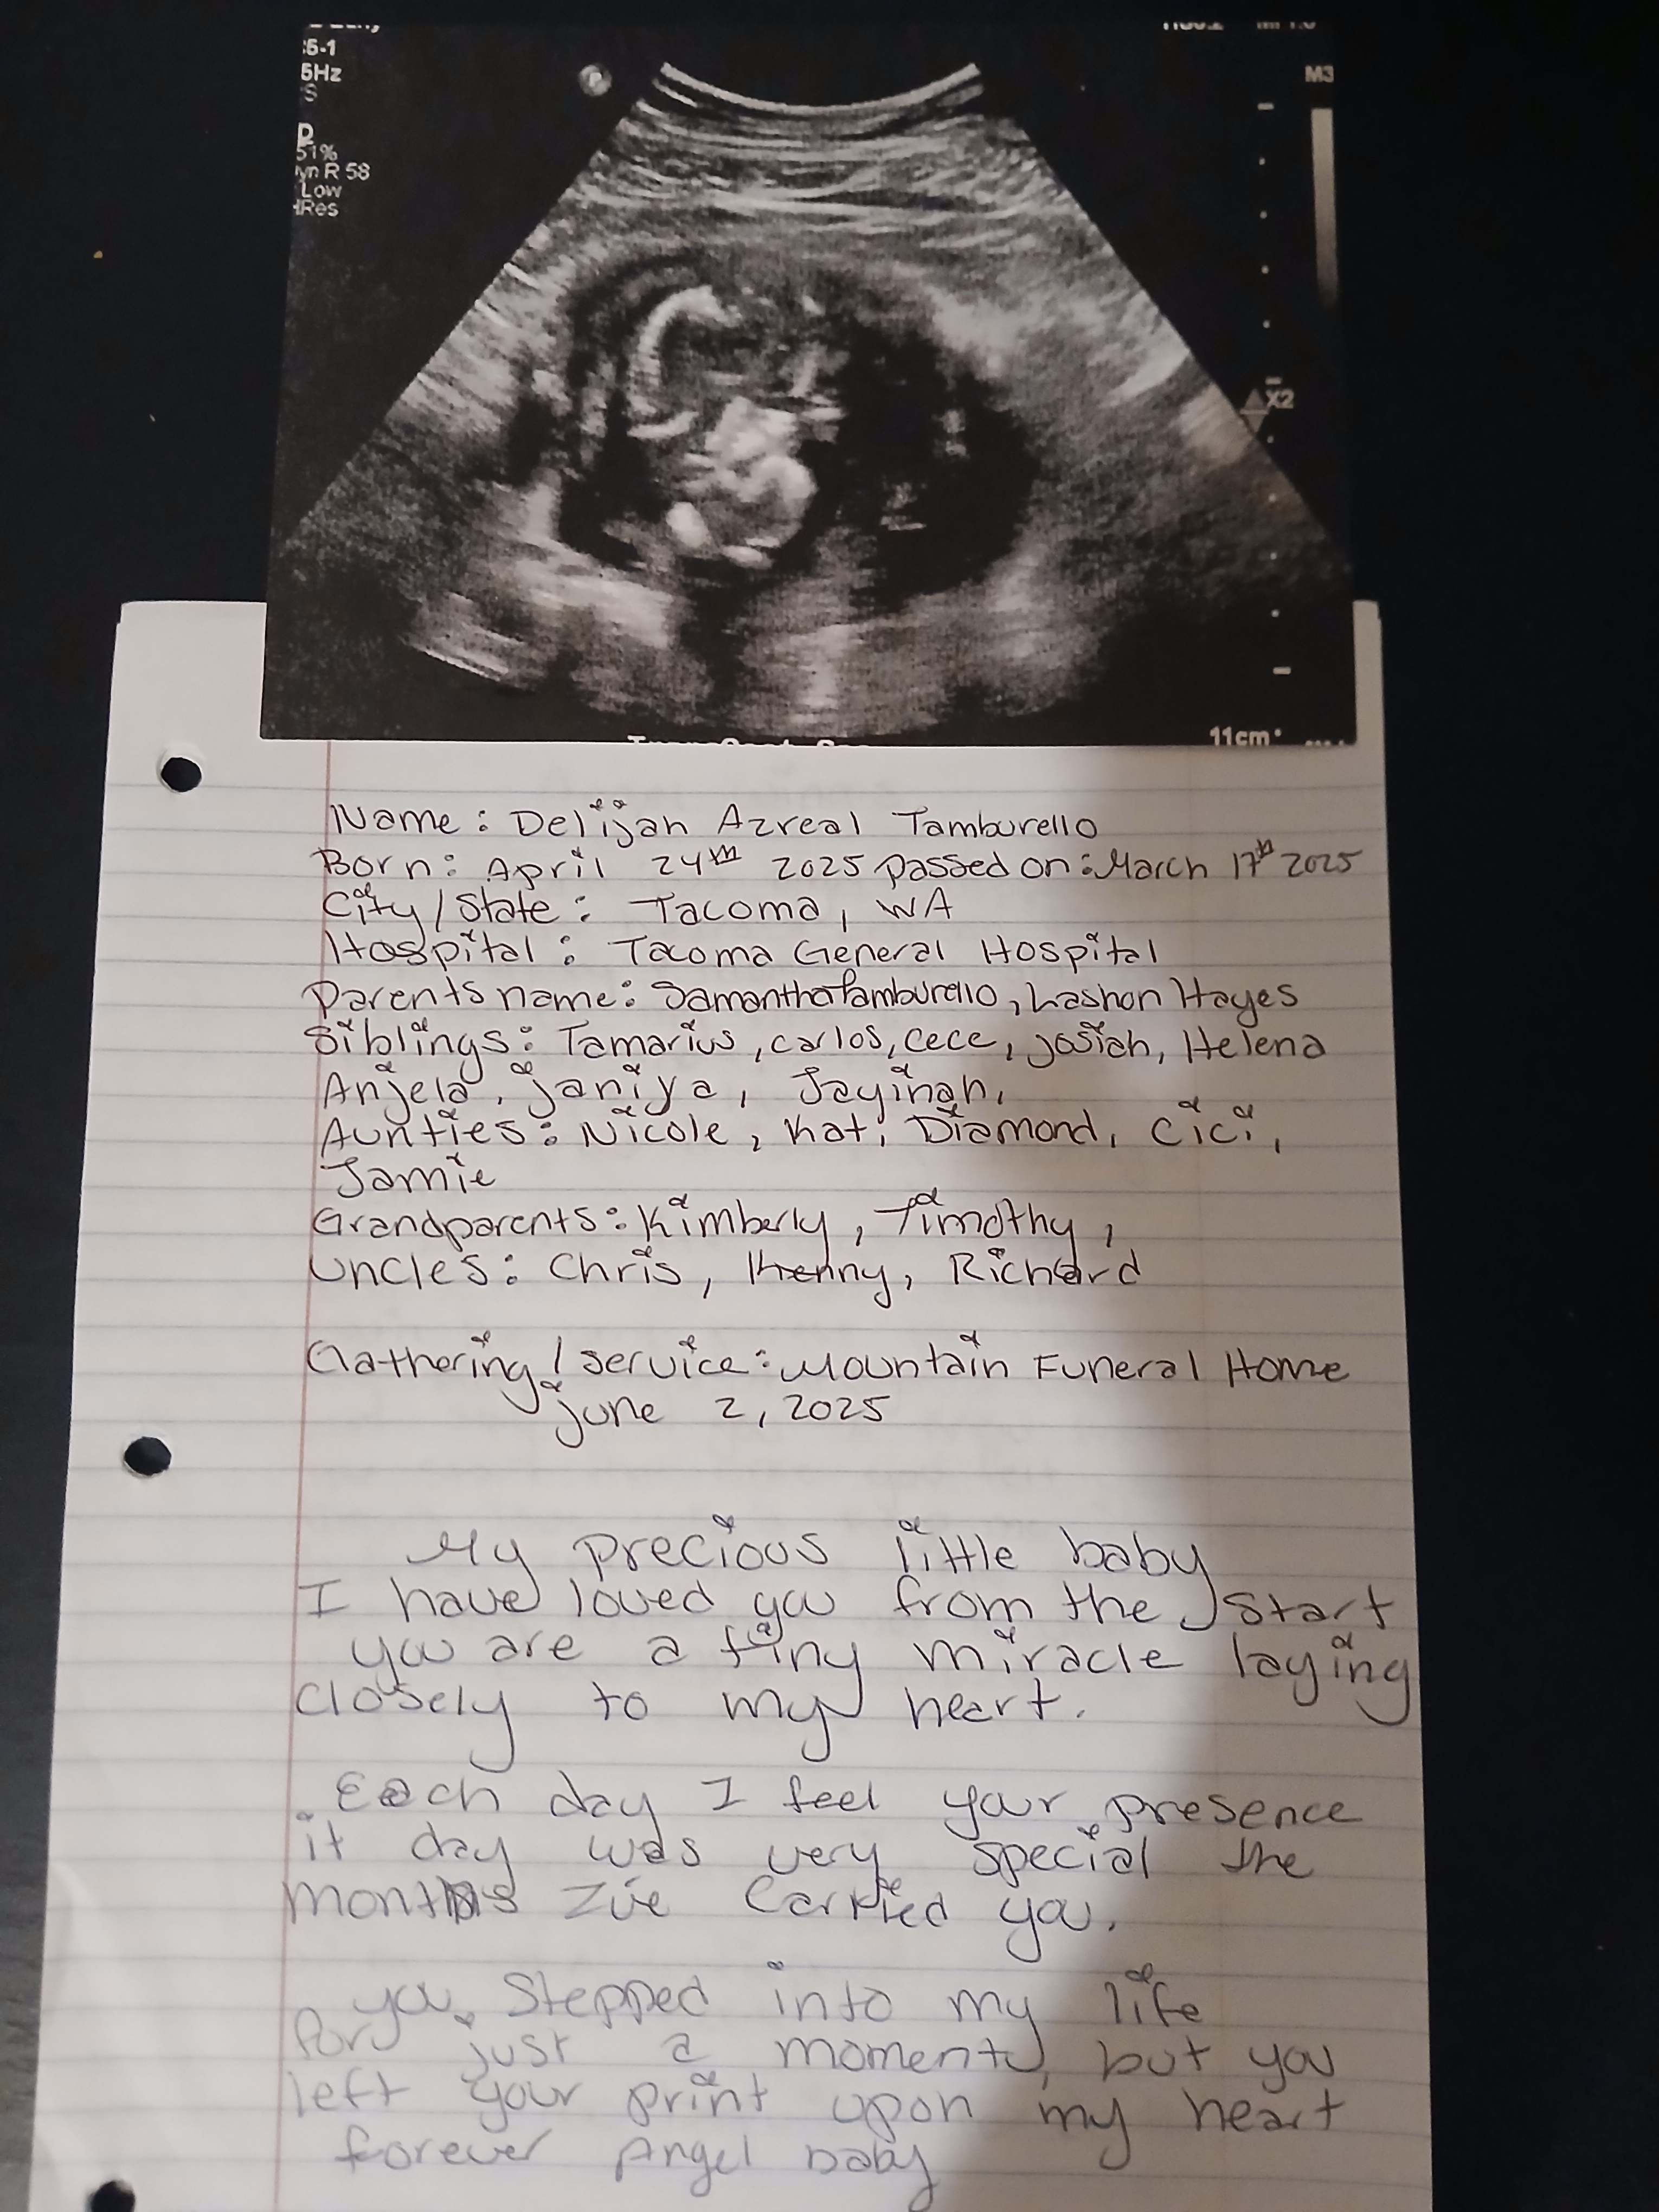 :6-1
5Hz
S
P
51%
yn R 58
Low
HRes
M3
X2
11cm
Name: Delijah Azreal Tamburello
Born: April 24th 2025 passed on: March 17th 2025
City/State: Tacoma, WA
Hospital: Tacoma General Hospital
Parents name: Samantha Tamburello, Lashon Hayes
Siblings: Tamarius, carlos, cece, josiah, Helena
Anjela, janiya, Jayinah,
Aunties: Nicole, Kat, Diamond, Cici,
Jamie
Grandparents: Kimberly, Timothy,
Uncles: Chris, Kenny, Richard
Gathering/service: Mountain Funeral Home
june 2, 2025
My precious little baby
I have loved you from the start
you are a tiny miracle laying
closely to my heart.
Each day I feel your presence
it day was very special the
months I've carried you.
you stepped into my life
for just a moment, but you
left your print upon my heart
forever Angel baby